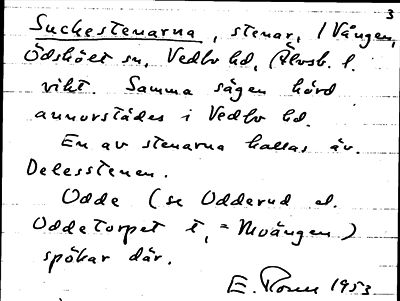 3
Suckestenarna, stenar, i Vången,
Ödskölt sn, Vedbo hd, Älvsb. l.
vikt. Samma sägen hörd
annorstädes i Vedbo hd.
En av stenarna kallas äv.
Delesstenen.
Udde (se Udderud el.
Uddetorpet t, = Moängen)
spökar där.
E. 1953